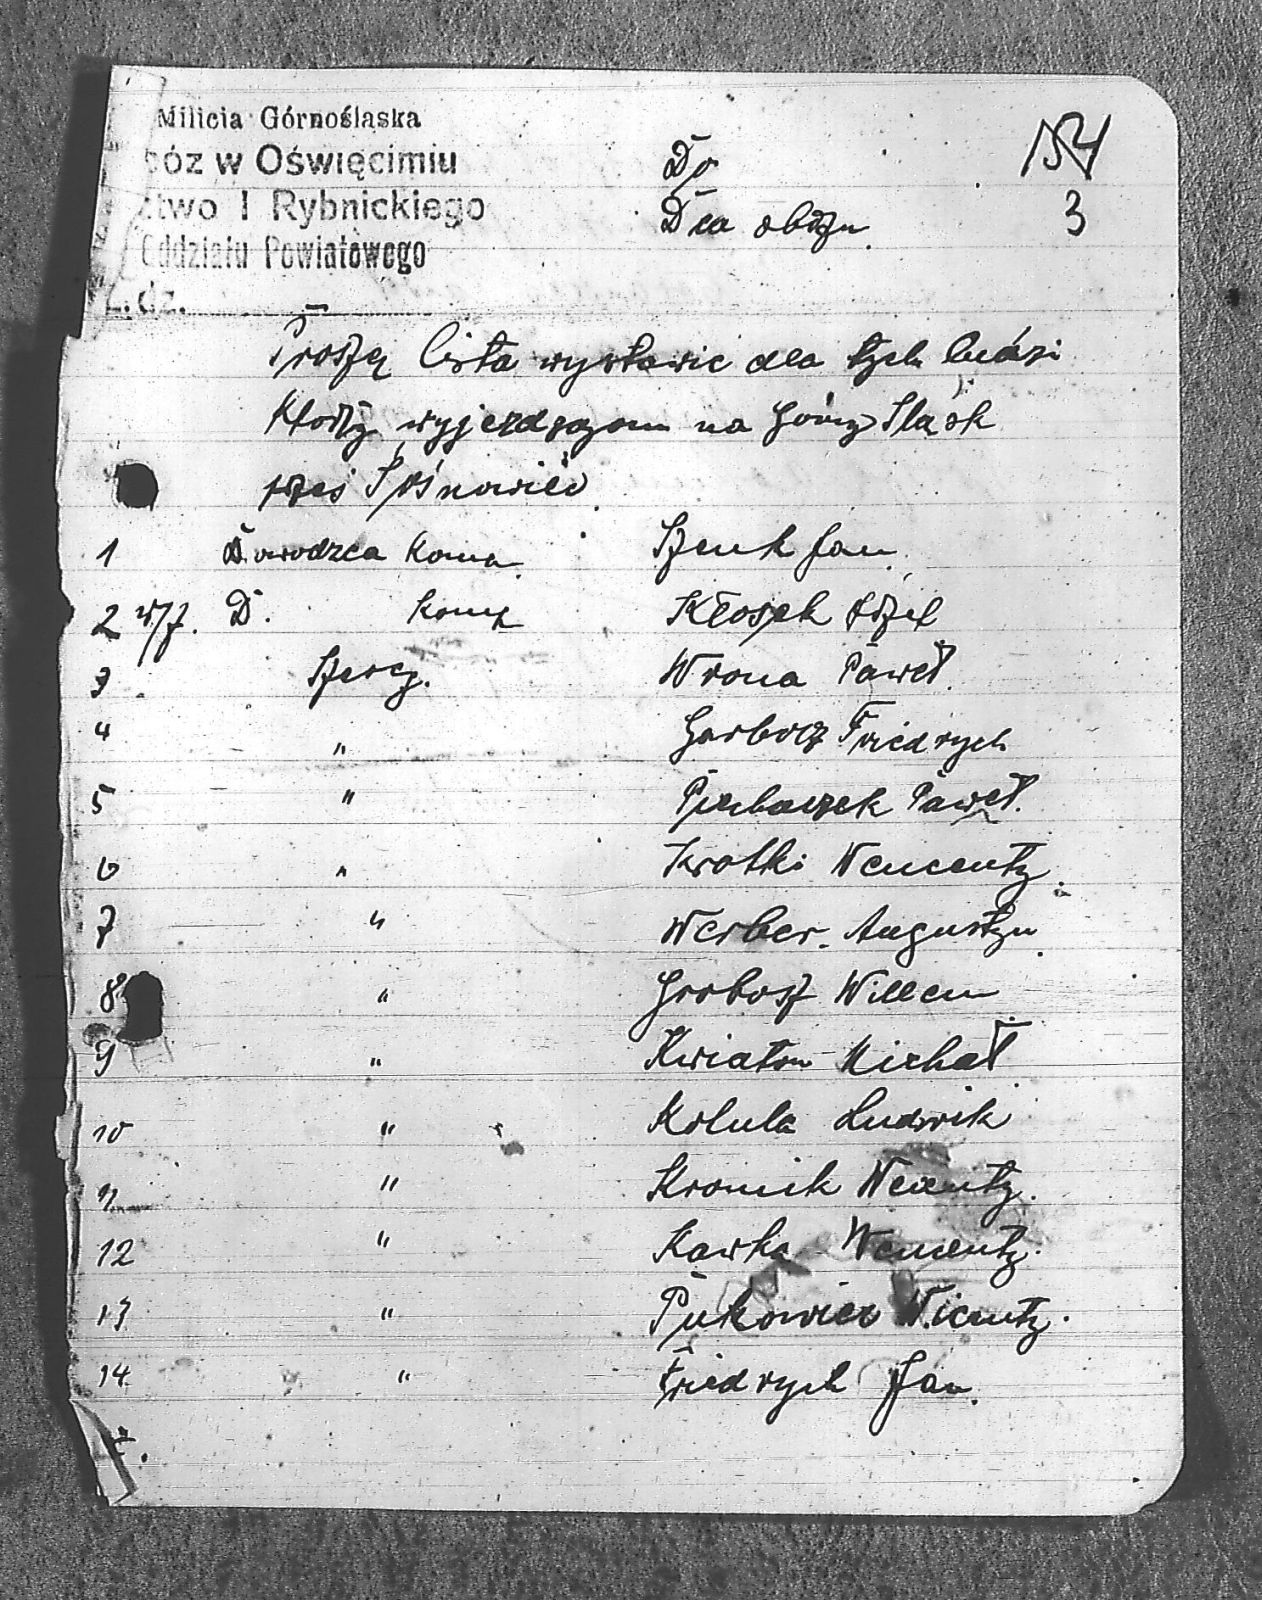 Milicia Górnośląska
bóz w Oświęcimiu
ztwo I Rybnickiego
Oddziału Powiatowego
L. dz.
Do
Dca obozu.
3
Proszę lista wystawic dla tych ludzi
którzy wyjezdzajom na Górny Sląsk
przes Sosnowiec
1 Dowodzca Komp. Szenk Jan.
2 w/z. D. Komp Kłosek Józef
3 Szereg. Wrona Paweł.
4 " Garbocz Friedrych
5 " Paweł.
6 " Krotki Wencenty.
7 " Werber. Augustyn.
8 " Grobosz Willem
9 " Kwiaton Michał
10 " Kolula Ludwik
11 " Kromik Wencenty.
12 " Kawka Wencenty.
13 " Pukowiec Wicenty.
14 " Friedrych Jan.